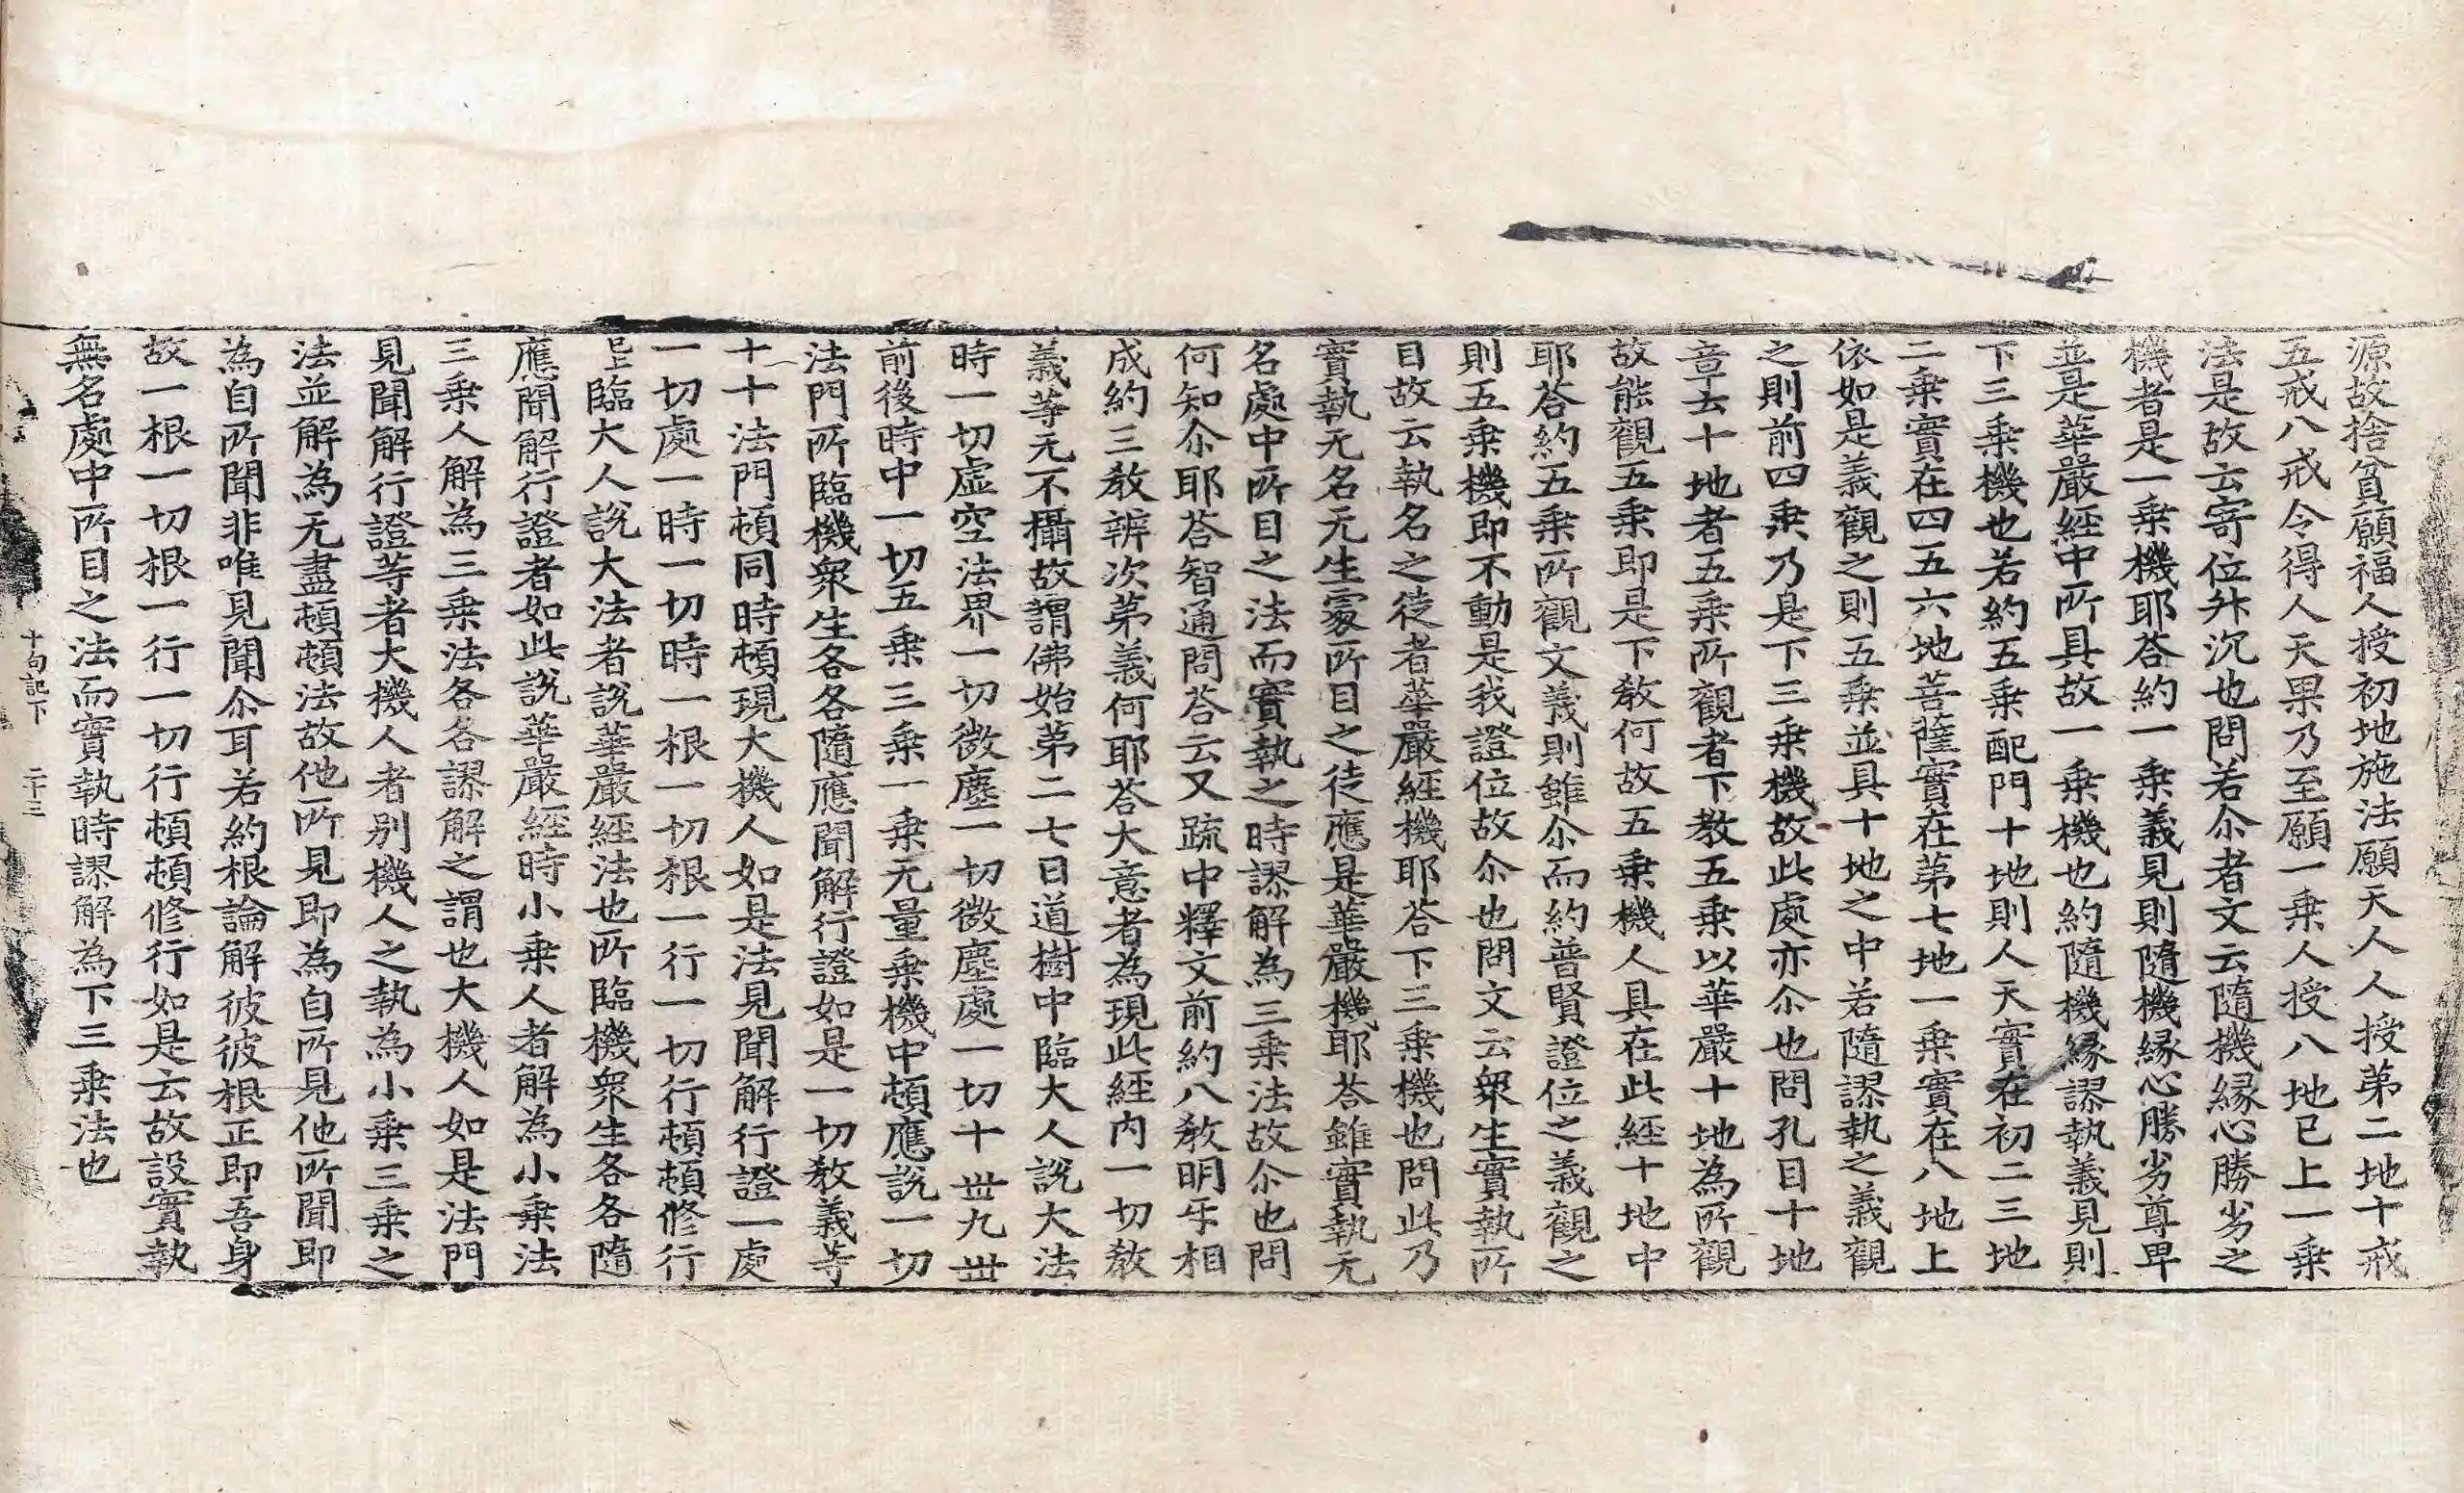 源故捨貧願福人授初地施法願天人人授第二地十戒
五戒八戒令得人天果乃至願一乗人授八地已上一乗
法是故云寄位升沉也問若尒者文云隨機縁心勝劣之
機者是一乗機耶荅約一乗義見則隨機縁心勝劣尊卑
並是華嚴經中所具故一乗機也約隨機縁謬執義見則
下三乗機也若約五乗配門十地則人天實在初二三地
二乗實在四五六地菩薩實在第七地一乗實在八地上
依如是義觀之則五乗並具十地之中若隨謬執之義觀
之則前四乗乃是下三乗機故此處亦尒也問孔目十地
章云十地者五乗所觀者下教五乗以華嚴十地為所觀
故能觀五乗即是下教何故五乗機人具在此經十地中
耶荅約五乗所觀文義則雖尒而約普賢證位之義觀之
則五乗機即不動是我證位故尒也問文云衆生實執所
目故云執名之徒者華嚴經機耶荅下三乗機也問此乃
實執无名无生䆠所目之徒應是華嚴機耶荅雖實執无
名處中所目之法而實執之時謬解為三乗法故尒也問
何知尒耶荅智通問荅云又䟽中釋文前約八教明㸦相
成約三教辨次第義何耶荅大意者為現此經内一切教
義等无不攝故謂佛始第二七日道樹中臨大人說大法
時一切虛空法界一切微塵一切微塵處一切十丗九丗
前後時中一切五乗三乗一乗无量乗機中頓應說一切
法門所臨機衆生各各隨應聞解行證如是一切教義等
十十法門頓同時頓現大機人如是法見聞解行證一處
一切處一時一切時一根一切根一行一切行頓頓修行
已上臨大人說大法者說華嚴經法也所臨機衆生各各隨
應聞解行證者如此說華嚴經時小乗人者解為小乗法
三乗人解為三乗法各各謬解之謂也大機人如是法門
見聞解行證等者大機人者别機人之執為小乗三乗之
法並解為无盡頓頓法故他所見即為自所見他所聞即
為自所聞非唯見聞尒耳若約根論解彼彼根正即吾身
故一根一切根一行一切行頓頓修行如是云故設實執
無名處中所目之法而實執時謬解為下三乗法也
十句記下　二十三